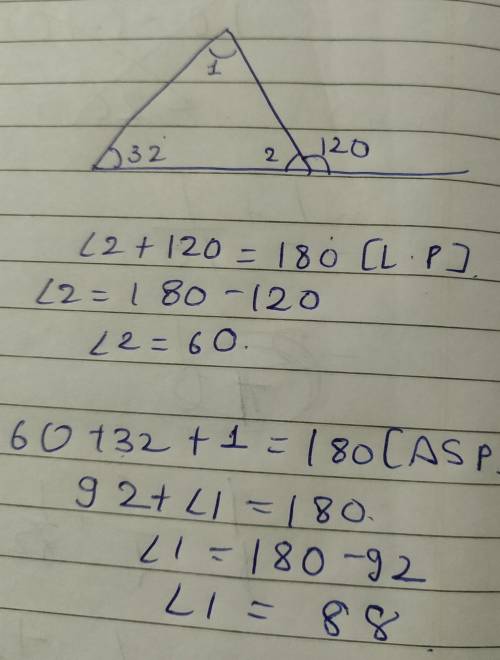 1
32 2 120
∠2 + 120 = 180 [L.P].
∠2 = 180 - 120
∠2 = 60.
60 + 32 + 1 = 180 [ASP.
92 + ∠1 = 180.
∠1 = 180 - 92
∠1 = 88